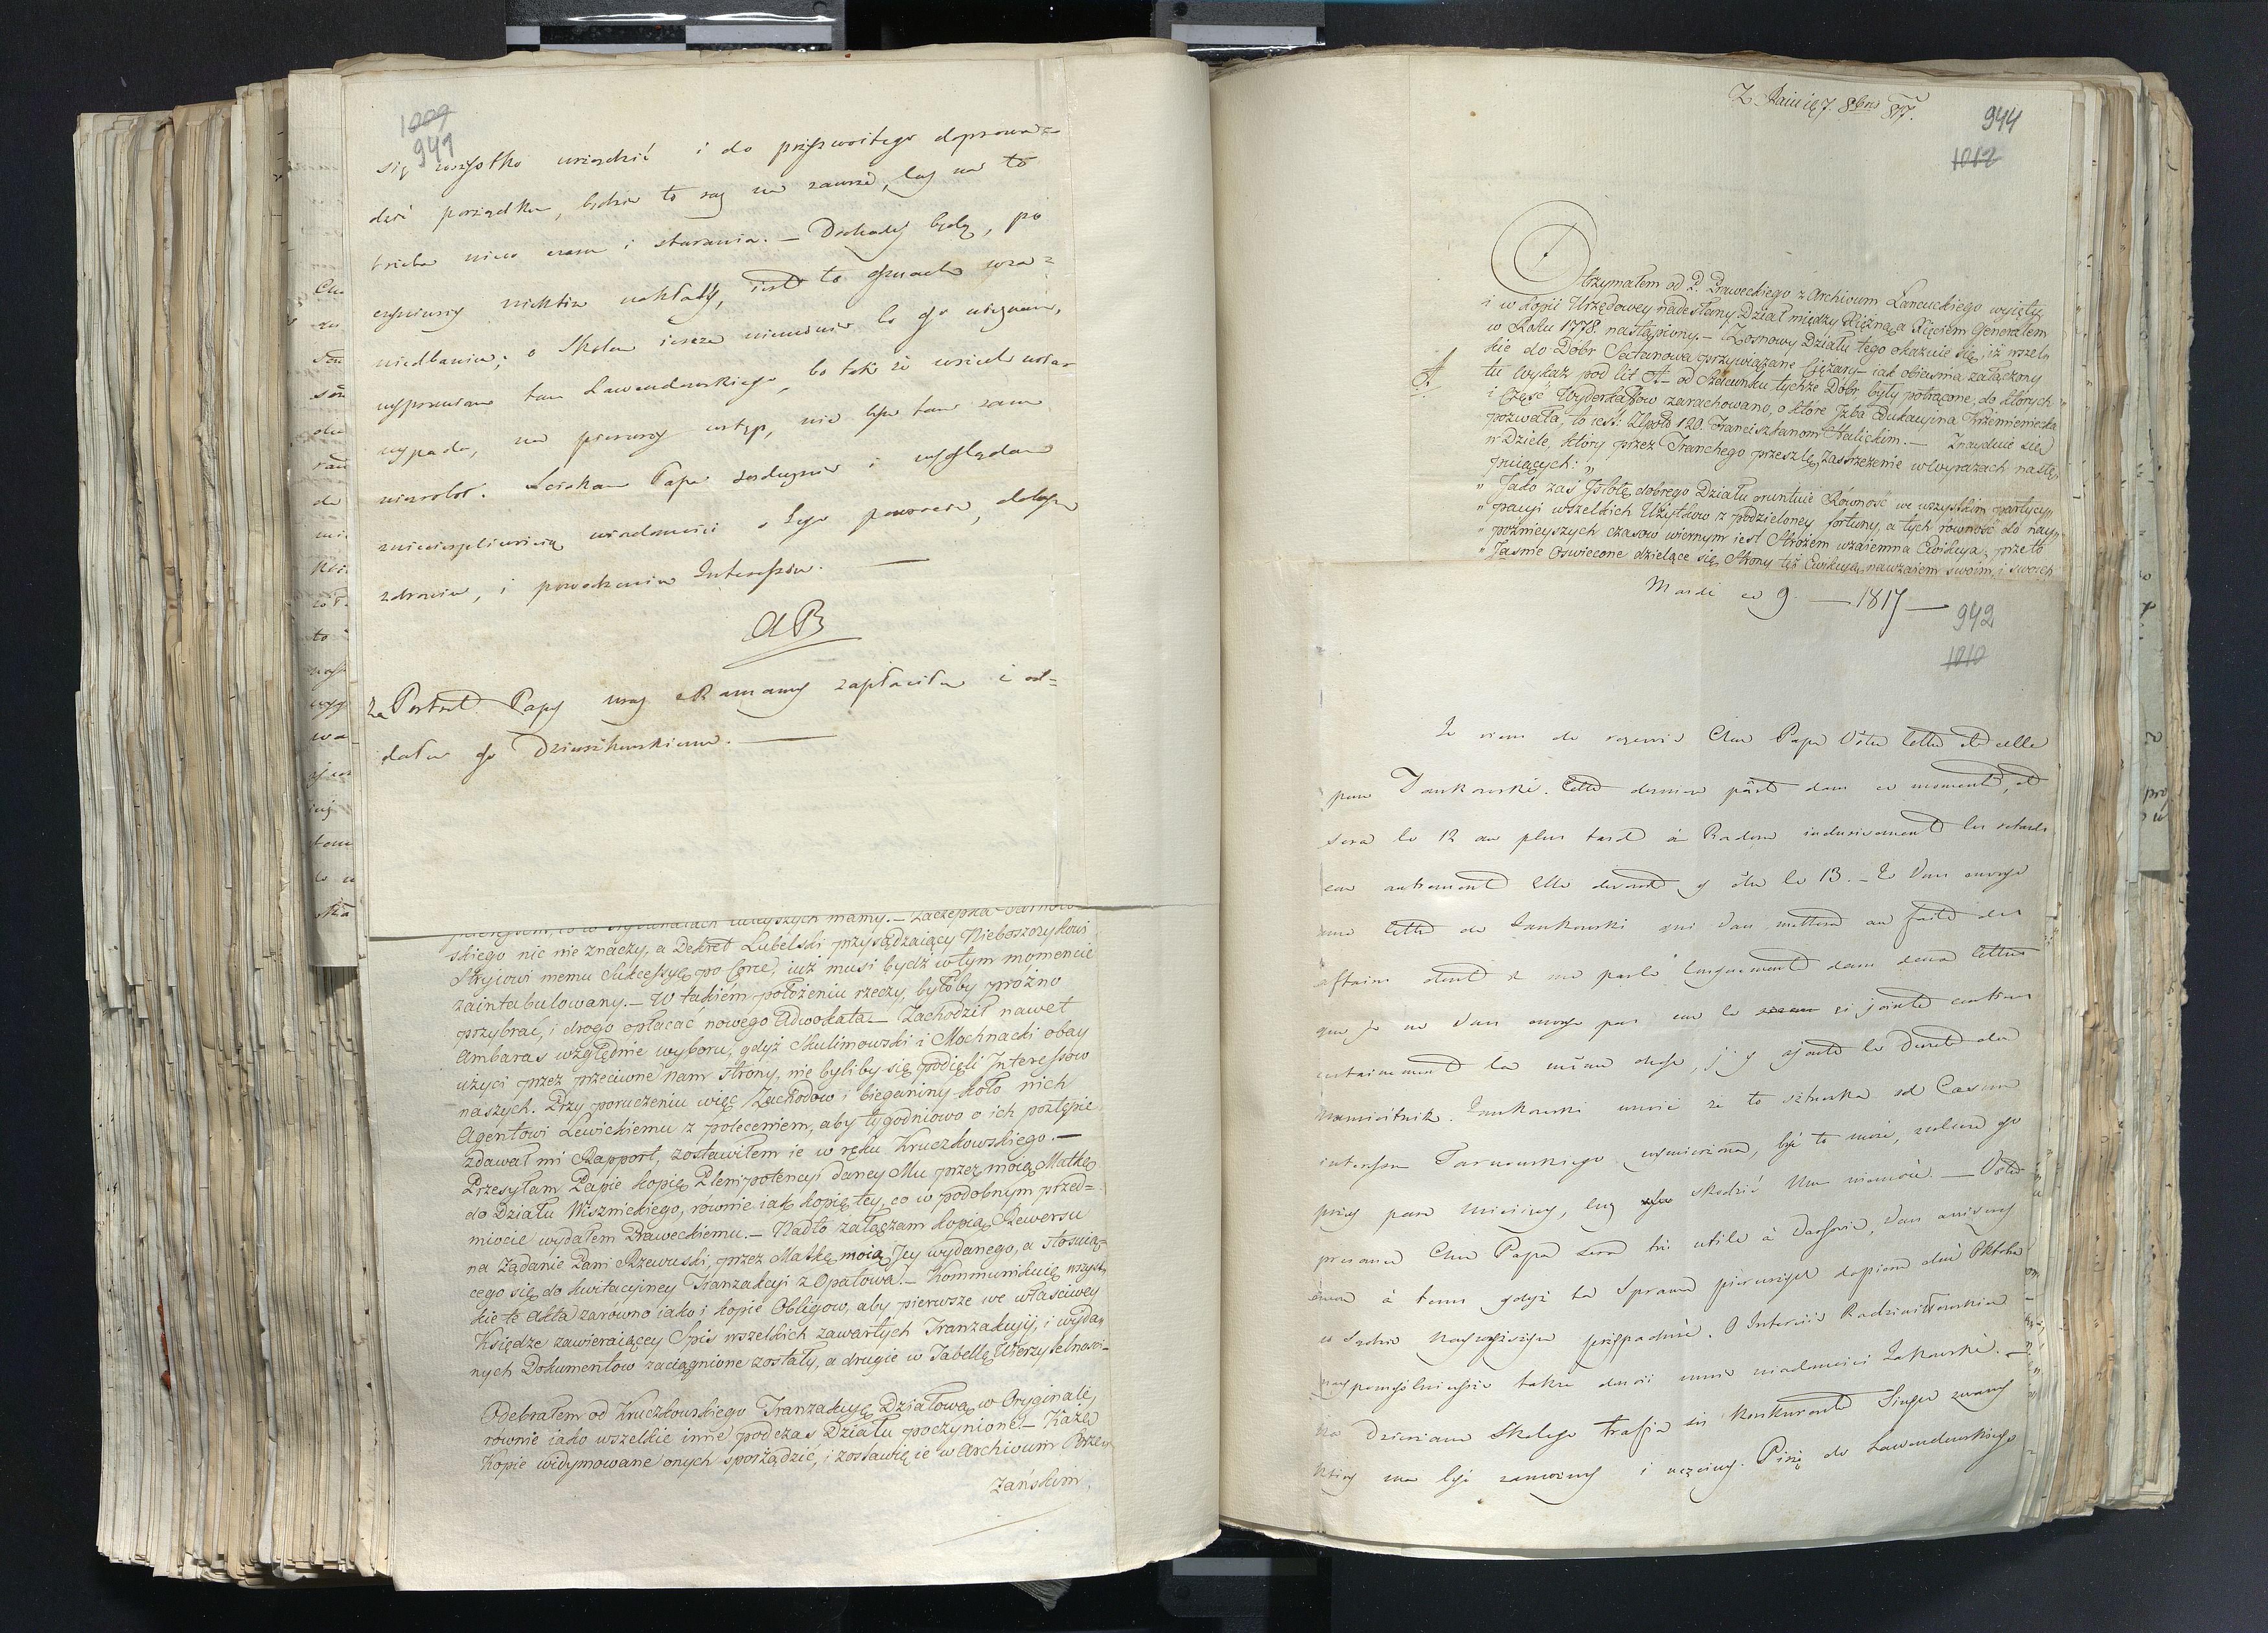 1009
941
się wszystko urządzić i do przyzwoitego doprowa=
dzić porządku, będzie to raz na zawsze, lecz na to
trzeba nieco czasu i starania. — Dochody będą, po
uczynieniu nakłady, iest to
niedbania; o Skolem ieszcze niemówię bo go nieznam,
wyprawiam tam Lawendowskiego, bo tak że
wypada, na pierwszy wstęp, nie był tam sam
niezrobił. Sciskam Papę serdecznie i wyglądam
z niecierpliwością wiadomości o Jego powrocie, dobrym
zdrowiu, i powodzeniu Interessów. —
AB
Za Portret Papy Mamy zapłaciła i od=
dała go Dzieszkowskiemu. —
mamy. — Zaczepka
skiego nic nie znaczy, a Dekret Lubelski przysądzaiący Nieboszczykowi
Stryiowi memu Sukcessyę po Corce, iuż musi bydź w tym momencie
zaintabulowany. — W takiém położeniu rzeczy, byłoby próżno
przybrać, i drogo opłacać nowego Adwokata. — Zachodził nawet
Ambaras względnie wyboru, gdyż Skulimowski i Mochnacki obay
użyci przez przeciwne nam strony, nie byliby się podięli Interessow
naszych. Przy poruczeniu więc Zachodow i bieganiny koło nich
Agentowi Lewickiemu z poleceniem, aby tygodniowo o ich postępie
zdawał mi Rapport, zostawiłem ie w ręku Kruczkowskiego. —
Przesyłam Papie kopię Plenipotencyi daney Mu przez moią Matkę
do Działu Wisznickiego, równie iak kopię tey, co w podobnym przed=
miocie wydałem Praweckiemu. — Nadto załączam kopią Rewersu
na Żądanie Pani Rzewuski, przez Matkę moią Jey wydanego, a stosuią=
cego się do kwitacyiney Tranzakcyi z Opatowa. — Kommunikuię wszyst=
kie te Akta zarówno iako i kopie Obligow, aby pierwsze we właściwey
Księdze zawieraiącey Spis wszelkich zawartych Tranzakcyy, i wyda=
nych Dokumentow zaciągnione zostały, a drugie w Tabellę Wierzytelnosci —
Odebrałem od Kruczkowskiego Tranzakcyę Działową w Oryginale,
równie iako wszelkie inne podczas Działu poczynione. — Każę
Kopie widymowane onych sporządzić, i zostawię ie w Archivum Brze=
żańskim,
Z Rai się 7. 8bra 817.
944
1012
Otrzymałem od P. Praweckiego z Archivum Lancuckiego wyięty,
i w kopii Urzędowey nadesłany Dział między Xiężną a Xięciem Generałem
w Roku 1778. nastąpiony. — Z osnowy Działu tego okazuie się, iż wszel=
kie do Dóbr Satanowa przywiązane Ciężary — iak obieśnia załączony
A.
tu Wykaz pod lit A — od Szacunku tychże Dóbr były potrącone, do których
i Część Wyderkaffow zarachowano, o które Izba Edukacyina Krzemieniecka
pozwała, to iest: Złpolo 120. Franciszkanom Halickim. — Znayduie się
w Dziele, który przez Tranchego przeszlę, zastrzeżenie w wyrazach nastę=
puiących: „
„ Jako zaś Istotę dobrego Działu gruntuie Równość we wszystkim partycy=
„ pacyi wszelkich Użytkow z podzieloney fortuny, a tych równość do nay=
„ pożnieyszych czasow wiernym iest Stróżem wzaiemna Ewikcya; przeto
„ Jasnie Oswiecone dzielące się Strony też Ewikcyą nawzaiem swoim, i swoich
Mardi ce 9. — 1817 —
942
1010
Je viens de recevoir Cher Papa Votre lettre et celle
pour Jankowski. Cette derniere part dans ce moment, et
sera le 12 au plus tard à Radom inclusivement les retards
car autrement Elle devoit y être le 13. — Je Vous envoye
une lettre de Jankowski qui Vous mettra au fait des
affaires dont il me parle longuement dans deux lettres
que je ne Vous envoye pas car la ci jointe contient
certainement la même chose, j'y ajoute le Decret du
Namiestnik. Jankowski mówi że to sztuczka od
interessu Tarnowskiego wymierzona, być to może,
przez parę Miesięcy, lecz skodzić Mu niemoże. — Votre
presence Cher Papa sera très utile à Varsovie, Vous arriverez
encor à tems gdyż ta Sprawa pierwszych dopiero dni Oktobra
w Sądzie Naywyższym przypadnie. O Interessie Radziwiłłowskim
naypomyślnieysze także donosi mnie wiadomości Jakowski. —
Na Dzierżawę Skolego trafia się Konkurent Singer zwany
który ma być zamożny i uczciwy. Piszę do Lawendowskiego